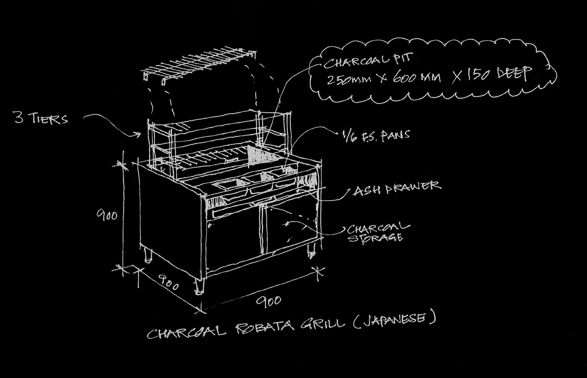 CHARCOAL PIT
250MM X 600MM X 150 DEEP
3 TIERS
1/6 F.S. PANS
ASH DRAWER
900
CHARCOAL
STORAGE
900
900
CHARCOAL ROBATA GRILL (JAPANESE)